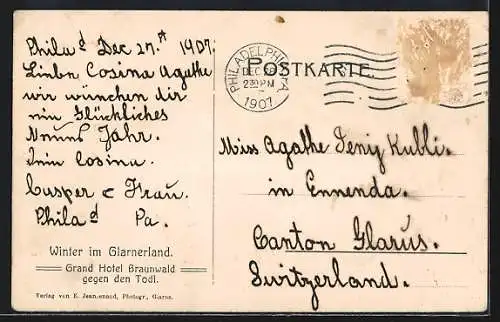 Phila d Dec 27. st 1907.
Liebn Cosina Agathe
wir wünchen dir
ein Glückliches
Neues Jahr.
Dein Cosina.
Casper & Frau.
Phila d Pa.
Winter im Glarnerland.
Grand Hotel Braunwald
gegen den Tödi.
Verlag von E. Jeanrenaud, Photogr., Glarus.
POSTKARTE.
PHILADELPHIA, PA
DEC
2 30 PM
1907
Miss Agathe Jenij Kubli.
in Ennenda.
Canton Glarus.
Switzerland.